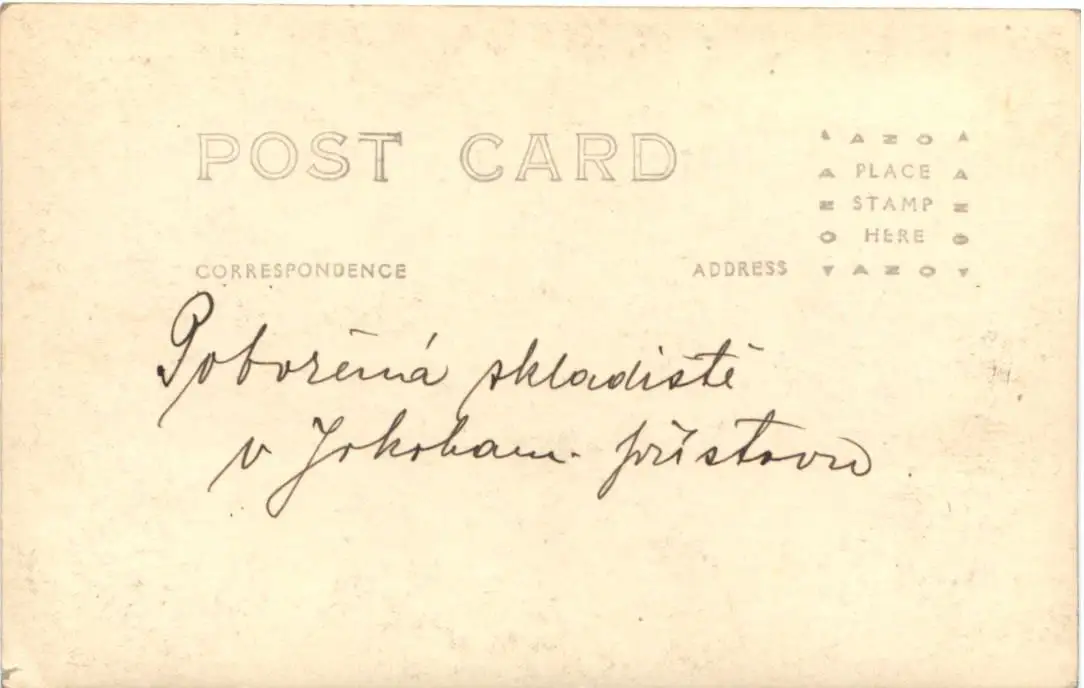 POST CARD
AZO
PLACE
STAMP
HERE
AZO
CORRESPONDENCE
ADDRESS
Pobořená skladiště
v Jokoham. přístavu